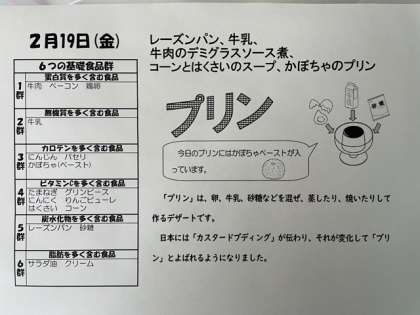 2月19日(金)
レーズンパン、牛乳、
牛肉のデミグラスソース煮、
コーンとはくさいのスープ、かぼちゃのプリン
6つの基礎食品群
蛋白質を多く含む食品
1群
牛肉 ベーコン 鶏卵
無機質を多く含む食品
2群
牛乳
カロテンを多く含む食品
3群
にんじん パセリ
かぼちゃ(ペースト)
ビタミンCを多く含む食品
4群
たまねぎ グリンピース
にんにく りんごピューレ
はくさい コーン
炭水化物を多く含む食品
5群
レーズンパン 砂糖
脂肪を多く含む食品
6群
サラダ油 クリーム
プリン
今日のプリンにはかぼちゃペーストが入
っています。
「プリン」は、卵、牛乳、砂糖などを混ぜ、蒸したり、焼いたりして
作るデザートです。
日本には「カスタードプディング」が伝わり、それが変化して「プリ
ン」とよばれるようになりました。